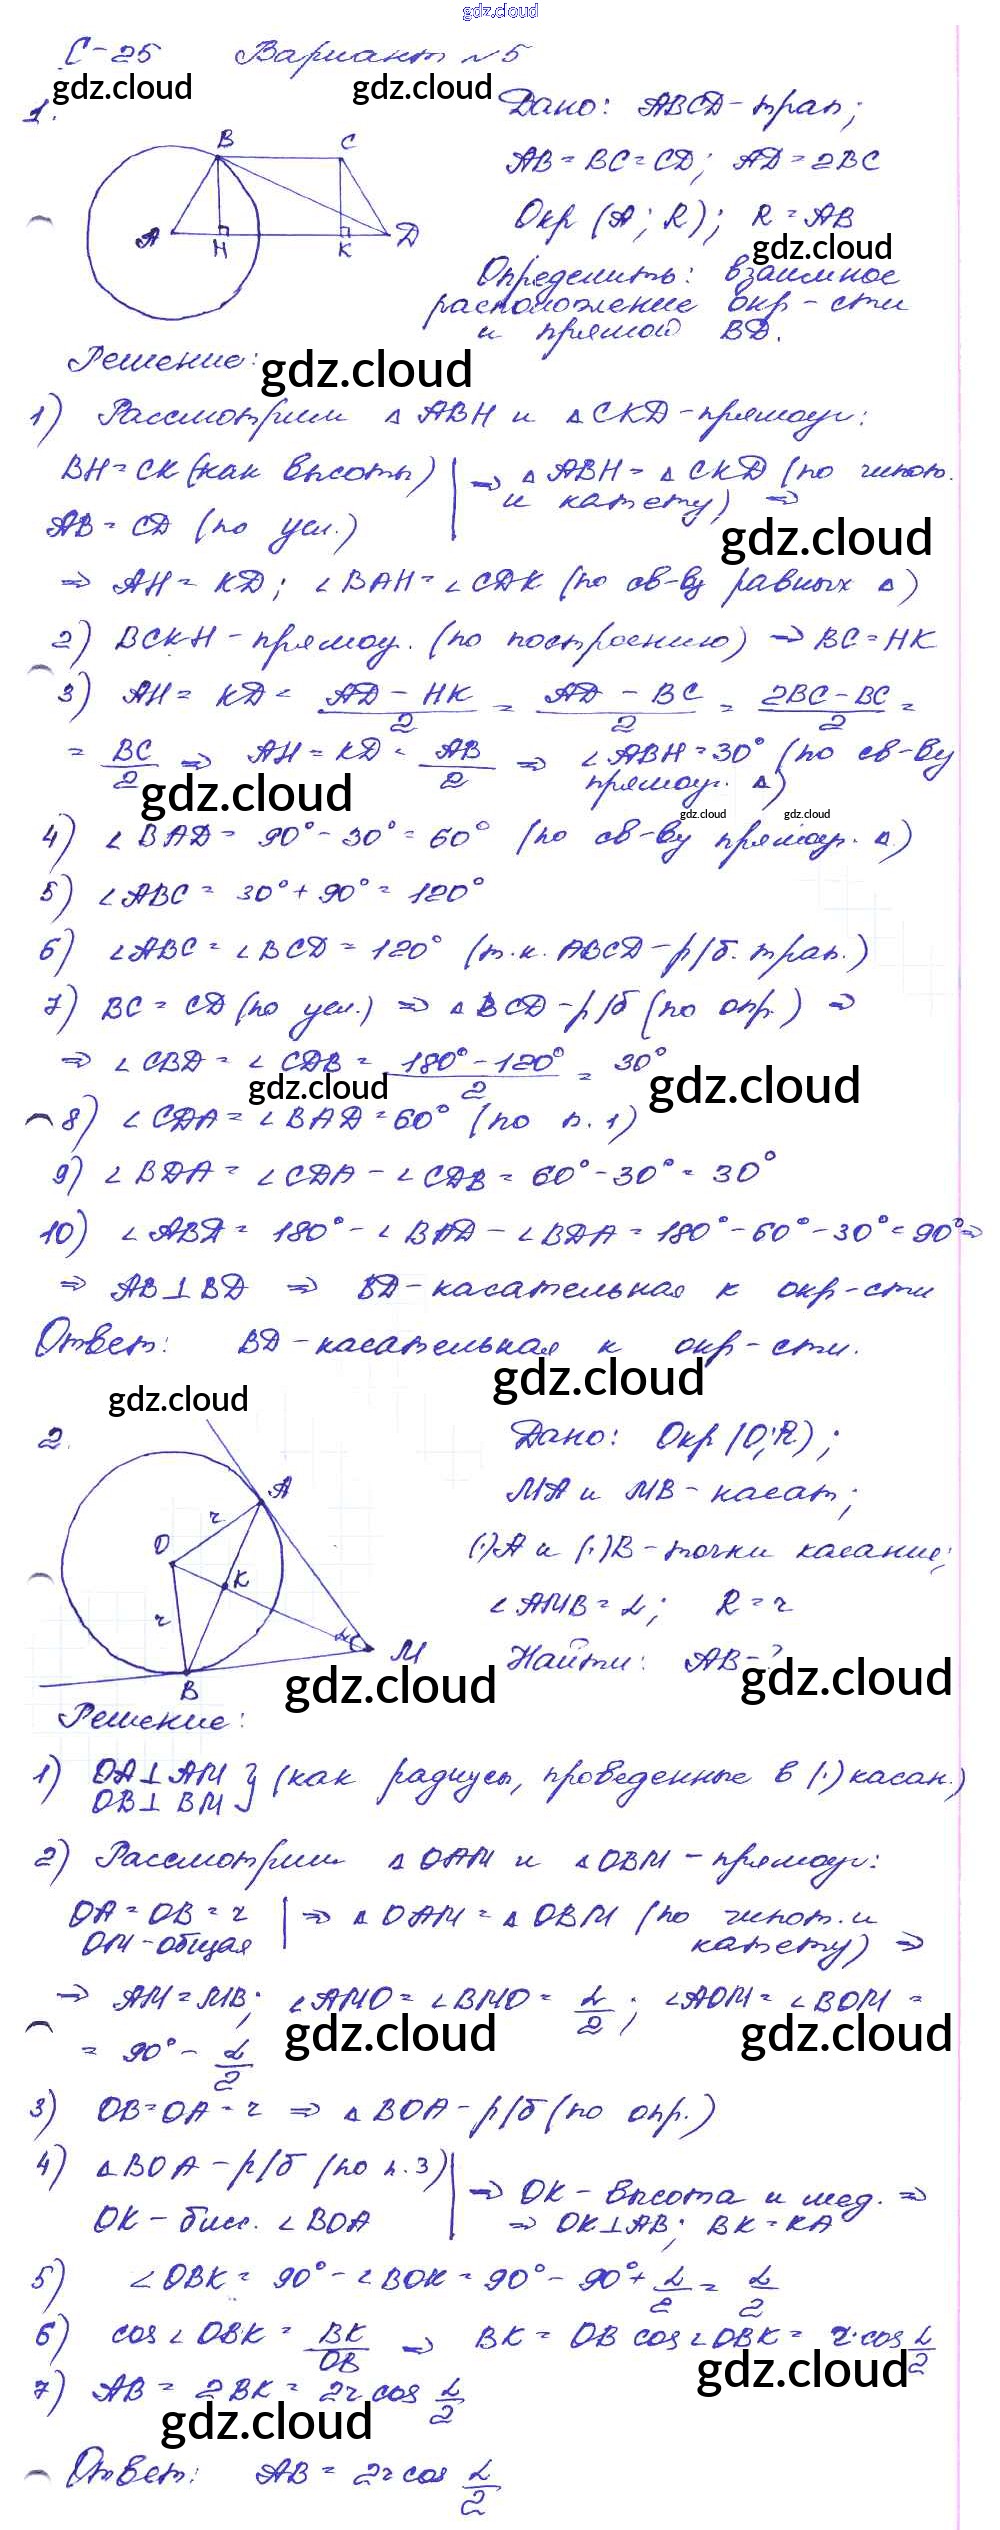 gdz.cloud
С-25 Вариант №5
gdz.cloud gdz.cloud
1.
Дано: ABCD-трап;
B C
AB=BC=CD; AD=2BC
A H K D
Окр (A; R); R=AB
gdz.cloud
Определить: взаимное
расположение окр-сти
и прямой BD.
Решение:
gdz.cloud
1) Рассмотрим △ABH и △CKD-прямоуг:
BH=CK (как высоты) | ⇒ △ABH=△CKD (по гипот.
и катету) ⇒
AB=CD (по усл.)
gdz.cloud
⇒ AH=KD; ∠BAH=∠CDK (по св-ву равных △)
2) BCKH-прямоу. (по построению) ⇒ BC=HK
3) AH= KD= (AD-HK)/2 = (AD-BC)/2 = (2BC-BC)/2 =
= BC/2 ⇒ AH=KD= AB/2 ⇒ ∠ABH=30° (по св-ву
прямоуг. △)
gdz.cloud
gdz.cloud gdz.cloud
4) ∠BAD= 90°-30°=60° (по св-ву прямоуг. △)
5) ∠ABC= 30°+90°=120°
6) ∠ABC=∠BCD=120° (т.к. ABCD-р/б. трап.)
7) BC=CD (по усл.) ⇒ △BCD-р/б (по опр.) ⇒
⇒ ∠CBD=∠CDB= (180°-120°)/2 = 30°
gdz.cloud gdz.cloud
8) ∠CDA=∠BAD=60° (по п.1)
9) ∠BDA= ∠CDA-∠CDB=60°-30°=30°
10) ∠ABD=180°-∠BAD-∠BDA=180°-60°-30°=90°⇒
⇒ AB⊥BD ⇒ BD-касательная к окр-сти
Ответ: BD-касательная к окр-сти.
gdz.cloud
gdz.cloud
2.
Дано: Окр (O;R);
A
MA и MB-касат;
O r
(·)A и (·)B-точки касание;
K
r
∠AMB=α; R=r
α M
Найти: AB-?
gdz.cloud gdz.cloud
B
Решение:
1) OA⊥AM
OB⊥BM } (как радиусы, проведенные в (·) касан.)
2) Рассмотрим △OAM и △OBM-прямоуг:
OA=OB=r | ⇒ △OAM=△OBM (по гипот. и
OM-общая катету) ⇒
⇒ AM=MB; ∠AMO=∠BMO= α/2; ∠AOM=∠BOM =
gdz.cloud gdz.cloud
= 90°- α/2
3) OB=OA=r ⇒ △BOA-р/б (по опр.)
4) △BOA-р/б (по п.3) | ⇒ OK-высота и мед. ⇒
OK-бисс. ∠BOA ⇒ OK⊥AB; BK=KA
5) ∠OBK= 90°-∠BOK=90°-90°+ α/2 = α/2
6) cos∠OBK= BK/OB ⇒ BK= OB cos∠OBK= r·cos α/2
gdz.cloud
7) AB= 2BK= 2r cos α/2
gdz.cloud
Ответ: AB= 2r cos α/2